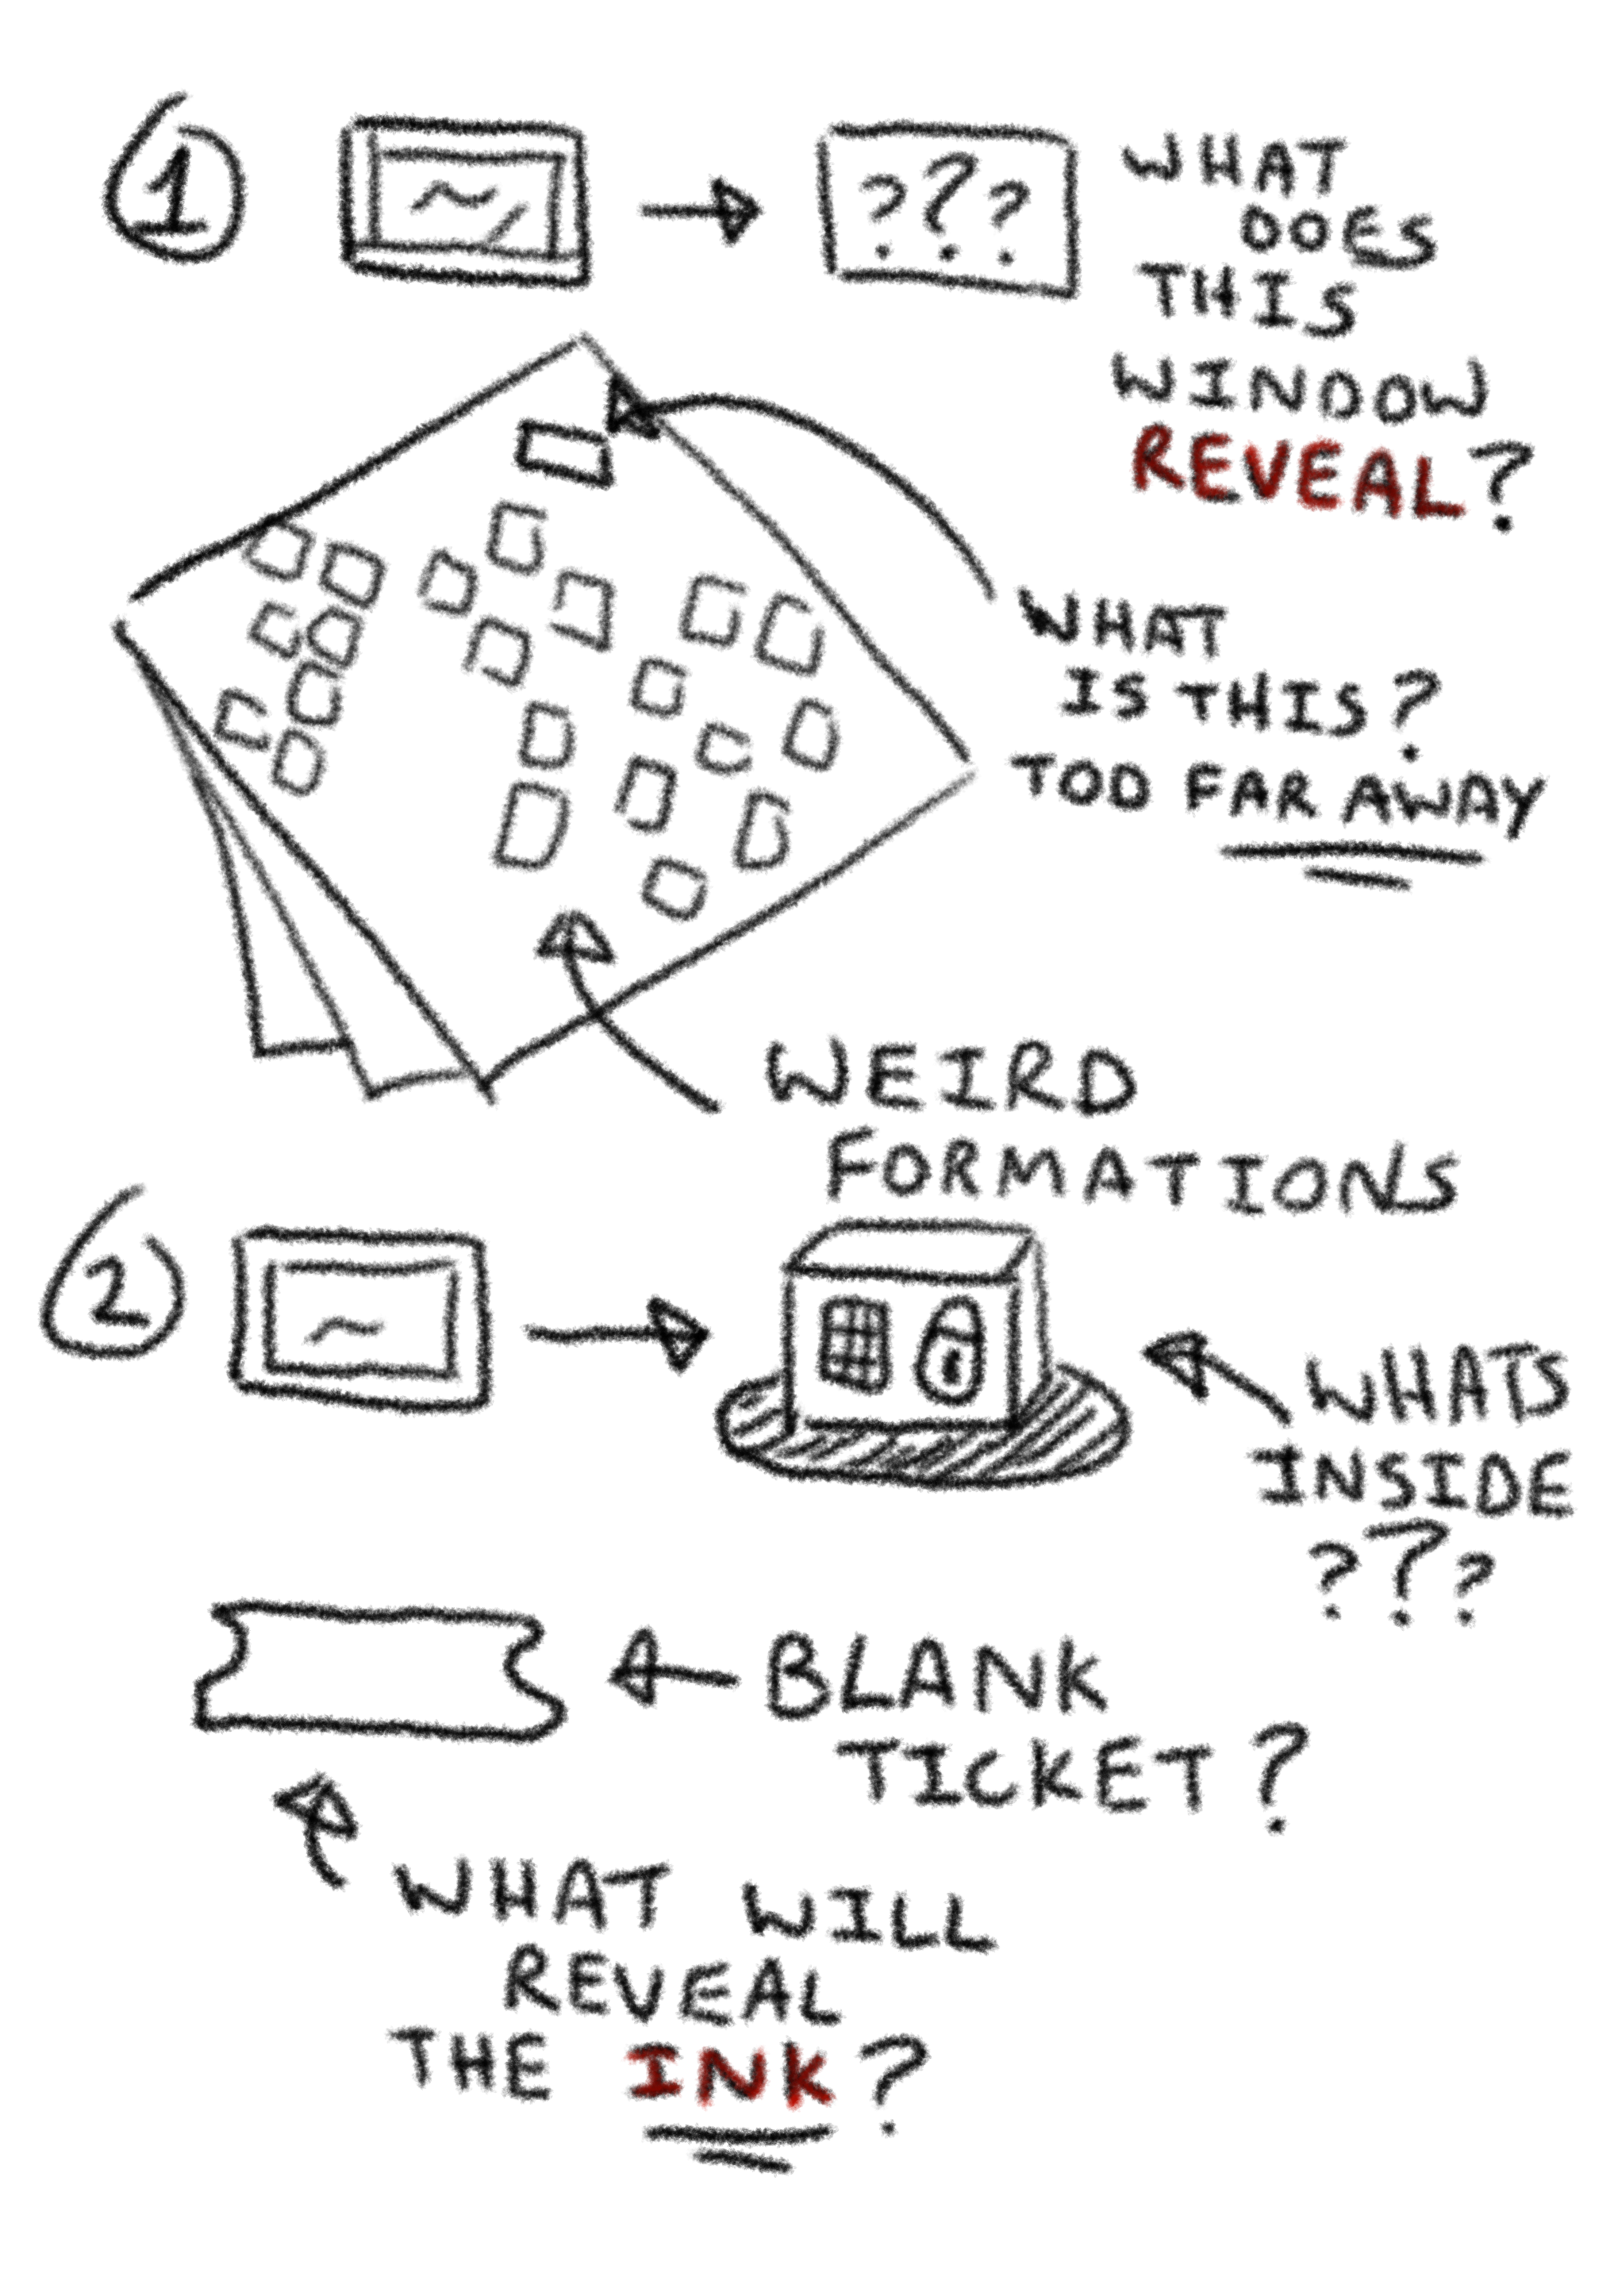 1
???
WHAT
DOES
THIS
WINDOW
REVEAL?
WHAT
IS THIS?
TOO FAR AWAY
WEIRD
FORMATIONS
2
WHATS
INSIDE
???
BLANK
TICKET?
WHAT WILL
REVEAL
THE INK?